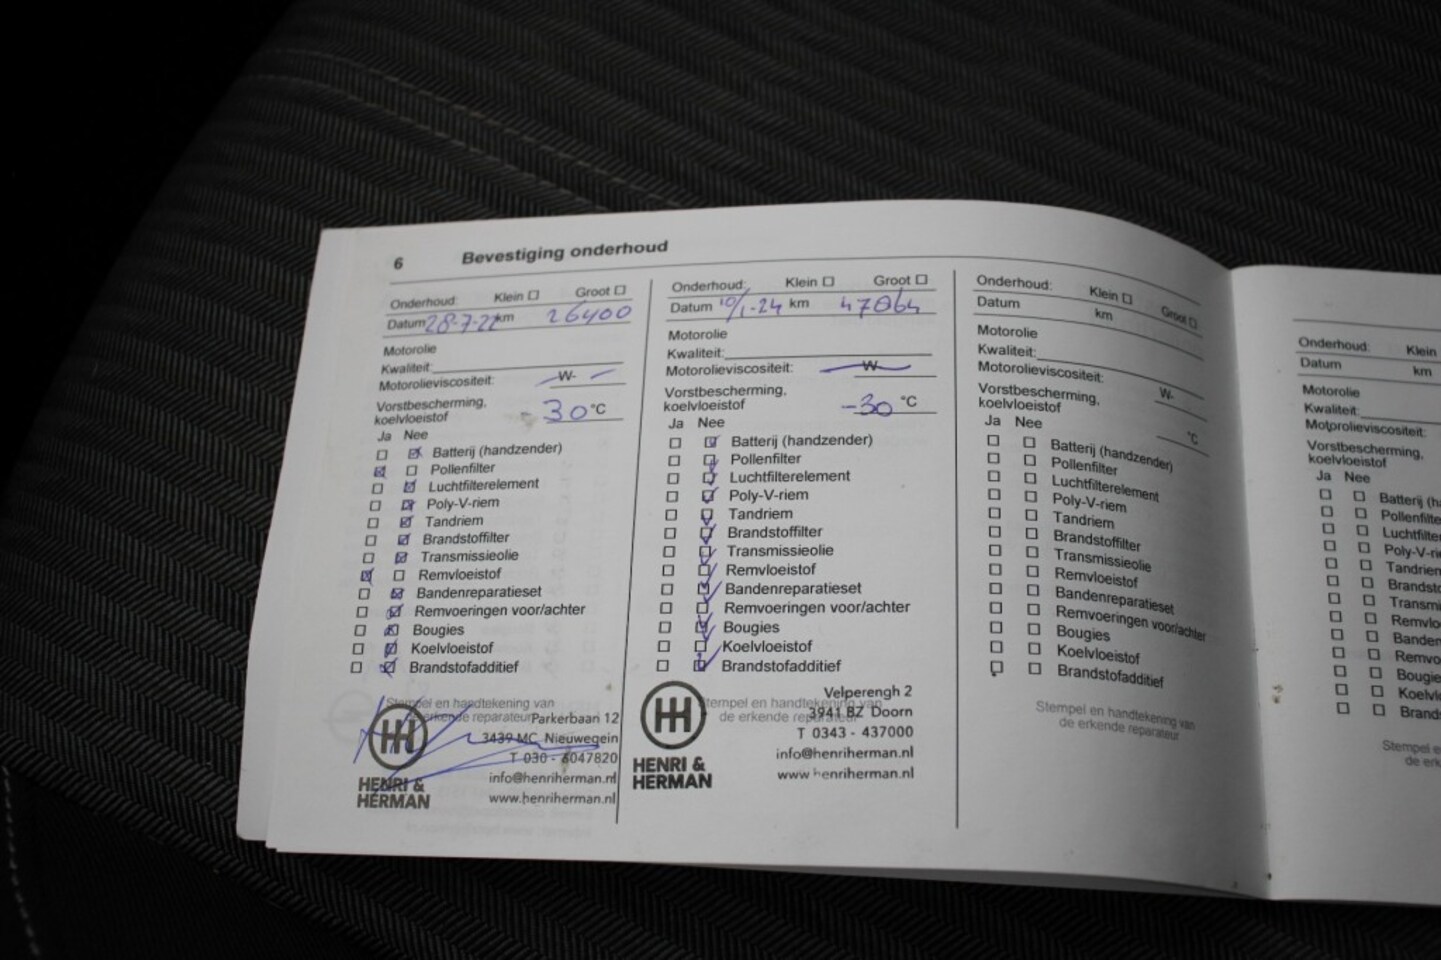 6 Bevestiging onderhoud
Onderhoud: Klein Groot
Datum 28-7-22 km 26400
Motorolie
Kwaliteit:
Motorolieviscositeit: -W-
Vorstbescherming,
koelvloeistof 30 °C
Ja Nee
Batterij (handzender)
Pollenfilter
Luchtfilterelement
Poly-V-riem
Tandriem
Brandstoffilter
Transmissieolie
Remvloeistof
Bandenreparatieset
Remvoeringen voor/achter
Bougies
Koelvloeistof
Brandstofadditief
Stempel en handtekening van
de erkende reparateur
Parkerbaan 12
3439 MC Nieuwegein
T 030 - 6047820
info@henriherman.nl
www.henriherman.nl
HENRI &
HERMAN
Onderhoud: Klein Groot
Datum 10/1-24 km 47864
Motorolie
Kwaliteit:
Motorolieviscositeit: W
Vorstbescherming,
koelvloeistof -30 °C
Ja Nee
Batterij (handzender)
Pollenfilter
Luchtfilterelement
Poly-V-riem
Tandriem
Brandstoffilter
Transmissieolie
Remvloeistof
Bandenreparatieset
Remvoeringen voor/achter
Bougies
Koelvloeistof
Brandstofadditief
Stempel en handtekening van
de erkende reparateur
Velperengh 2
3941 BZ Doorn
T 0343 - 437000
info@henriherman.nl
www.henriherman.nl
HENRI &
HERMAN
Onderhoud: Klein Groot
Datum km
Motorolie
Kwaliteit:
Motorolieviscositeit: W-
Vorstbescherming,
koelvloeistof °C
Ja Nee
Batterij (handzender)
Pollenfilter
Luchtfilterelement
Poly-V-riem
Tandriem
Brandstoffilter
Transmissieolie
Remvloeistof
Bandenreparatieset
Remvoeringen voor/achter
Bougies
Koelvloeistof
Brandstofadditief
Stempel en handtekening van
de erkende reparateur
Onderhoud: Klein
Datum km
Motorolie
Kwaliteit:
Motorolieviscositeit:
Vorstbescherming,
koelvloeistof
Ja Nee
Batterij (h
Pollenfilte
Luchtfilter
Poly-V-ri
Tandriem
Brandst
Transmi
Remvlo
Banden
Remvo
Bougie
Koelvl
Brands
Stempel e
de erk